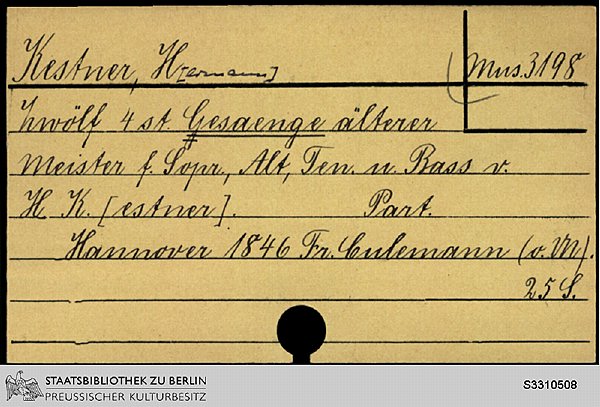 Kestner, H[ermann]
Mus. 3198
Zwölf 4 st. Gesaenge älterer
Meister f. Sopr., Alt, Ten. u. Bass v.
H. K. [estner]. Part.
Hannover 1846 Fr. Culemann (o. VN).
25 S.
STAATSBIBLIOTHEK ZU BERLIN
PREUSSISCHER KULTURBESITZ
S3310508